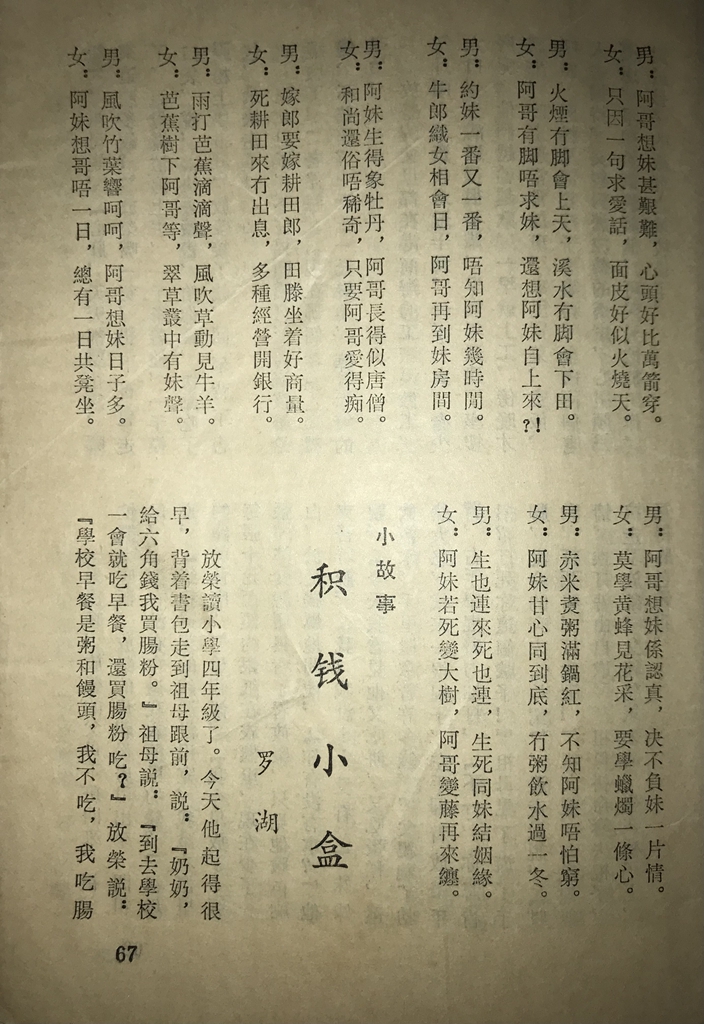 男：阿哥想妹甚艱難，心頭好比萬箭穿。
女：只因一句求愛話，面皮好似火燒天。
男：火煙冇脚會上天，溪水冇脚會下田。
女：阿哥有脚唔求妹，還想阿妹自上來？！
男：約妹一番又一番，唔知阿妹幾時閒。
女：牛郎織女相會日，阿哥再到妹房間。
男：阿妹生得象牡丹，阿哥長得似唐僧。
女：和尚還俗唔稀奇，只要阿哥愛得痴。
男：嫁郎要嫁耕田郎，田塍坐着好商量。
女：死耕田來冇出息，多種經營開銀行。
男：雨打芭蕉滴滴聲，風吹草動見牛羊。
女：芭蕉樹下阿哥等，翠草叢中有妹聲。
男：風吹竹葉響呵呵，阿哥想妹日子多。
女：阿妹想哥唔一日，總有一日共凳坐。
男：阿哥想妹係認真，决不負妹一片情。
女：莫學黄蜂見花采，要學蠟燭一條心。
男：赤米煑粥滿鍋紅，不知阿妹唔怕窮。
女：阿妹甘心同到底，冇粥飲水過一冬。
男：生也連來死也連，生死同妹結姻緣。
女：阿妹若死變大樹，阿哥變藤再來纏。
小故事
积钱小盒
罗湖
放榮讀小學四年級了。今天他起得很
早，背着書包走到祖母跟前，説：『奶奶，
給六角錢我買腸粉。』祖母説：『到去學校
一會就吃早餐，還買腸粉吃？』放榮説：
『學校早餐是粥和饅頭，我不吃，我吃腸
67